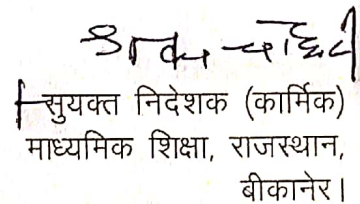 सुयक्त निदेशक (कार्मिक)
माध्यमिक शिक्षा, राजस्थान,
बीकानेर।